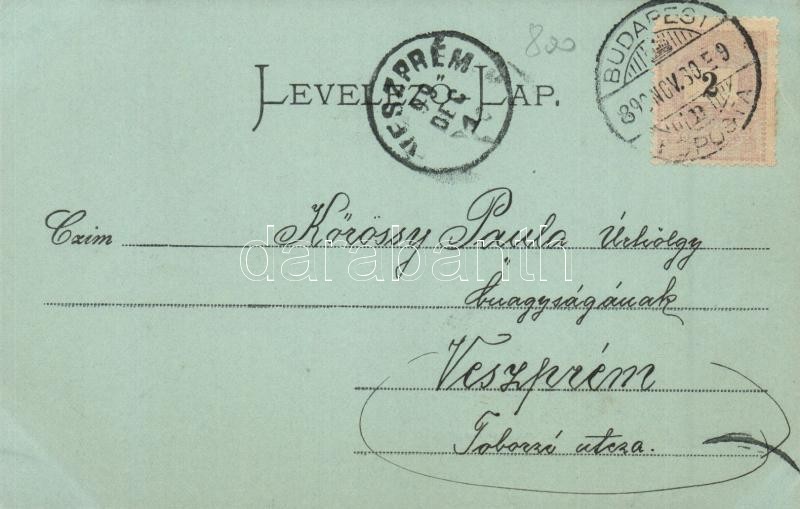 800
LEVELEZŐ LAP.
VESZPRÉM
99
DEC
1
BUDAPEST
899 NOV. 30. E 9
FŐPOSTA
2
Czim Kőrössy Paula Úrhölgy
Őnagyságának
darabanth
Veszprém
Toborzó utcza.